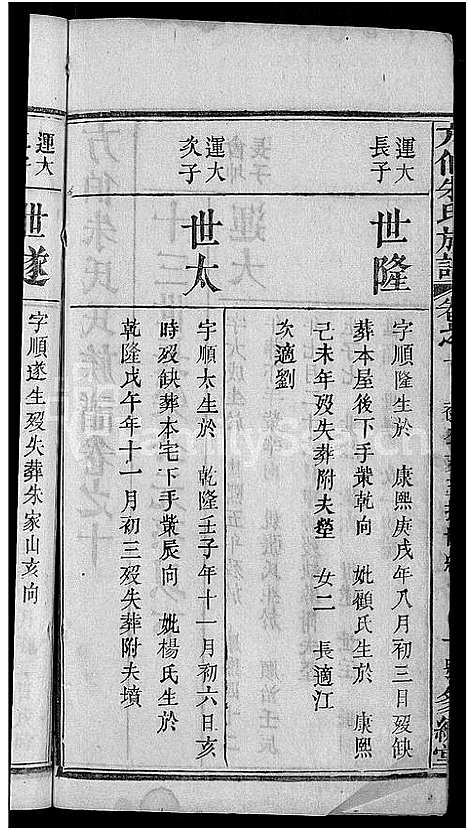 方伯朱氏族譜
運大長子
世隆
字順隆生於 康熙庚戌年八月初三日歿缺
葬本屋後下手塋乾向 妣顧氏生於 康熙
己未年歿失葬附夫塋 女二 長適江
次適劉
運大次子
世太
字順太生於 乾隆壬子年十一月初六日亥
時歿缺葬本宅下手塋辰向 妣楊氏生於
乾隆戊午年十一月初三歿失葬附夫墳
運大
世遂
字順遂生歿失葬朱家山亥向